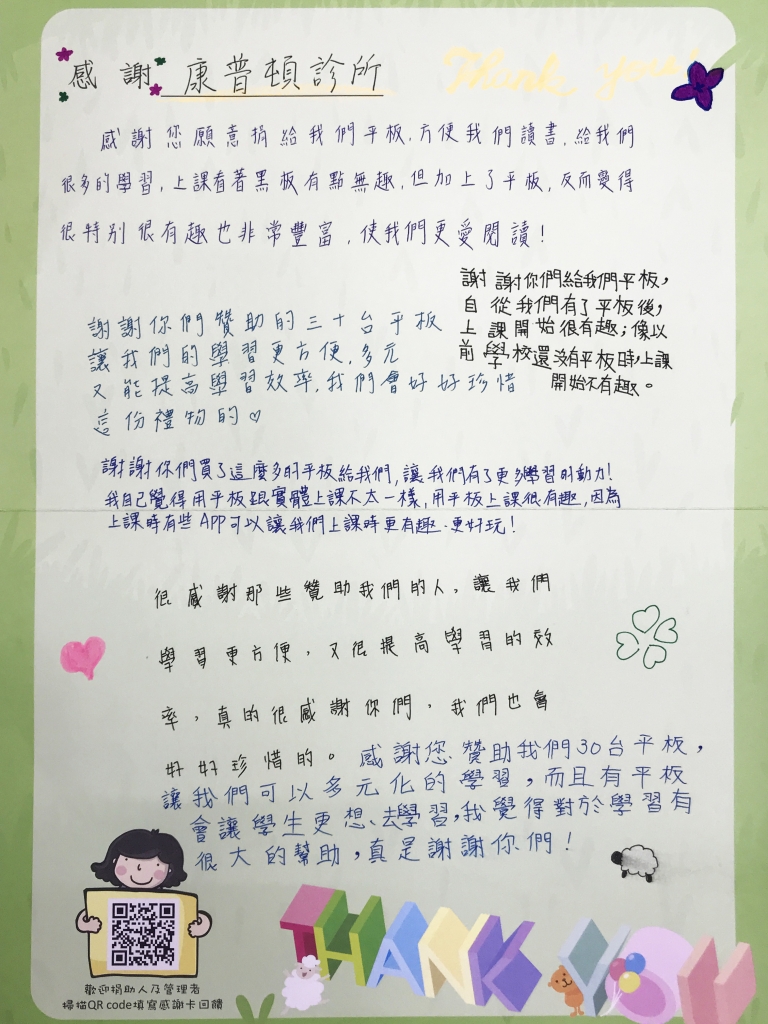 感謝 康普頓診所
Thank you!
感謝您願意捐給我們平板,方便我們讀書,給我們
很多的學習,上課看著黑板有點無趣,但加上了平板,反而變得
很特別很有趣也非常豐富,使我們更愛閱讀!
謝謝你們給我們平板,
自從我們有了平板後,
上課開始很有趣;像以
前學校還沒有平板時,上課
開始不有趣。
謝謝你們贊助的三十台平板
讓我們的學習更方便,多元
又能提高學習效率,我們會好好珍惜
這份禮物的♡
謝謝你們買了這麼多的平板給我們,讓我們有了更多學習的動力!
我自己覺得用平板跟實體上課不太一樣,用平板上課很有趣,因為
上課時有些APP可以讓我們上課時更有趣、更好玩!
很感謝那些贊助我們的人,讓我們
學習更方便,又很提高學習的效
率,真的很感謝你們,我們也會
好好珍惜的。
感謝您贊助我們30台平板,
讓我們可以多元化的學習,而且有平板
會讓學生更想去學習,我覺得對於學習有
很大的幫助,真是謝謝你們!
THANK YOU
歡迎捐助人及管理者
掃描QR code填寫感謝卡回饋